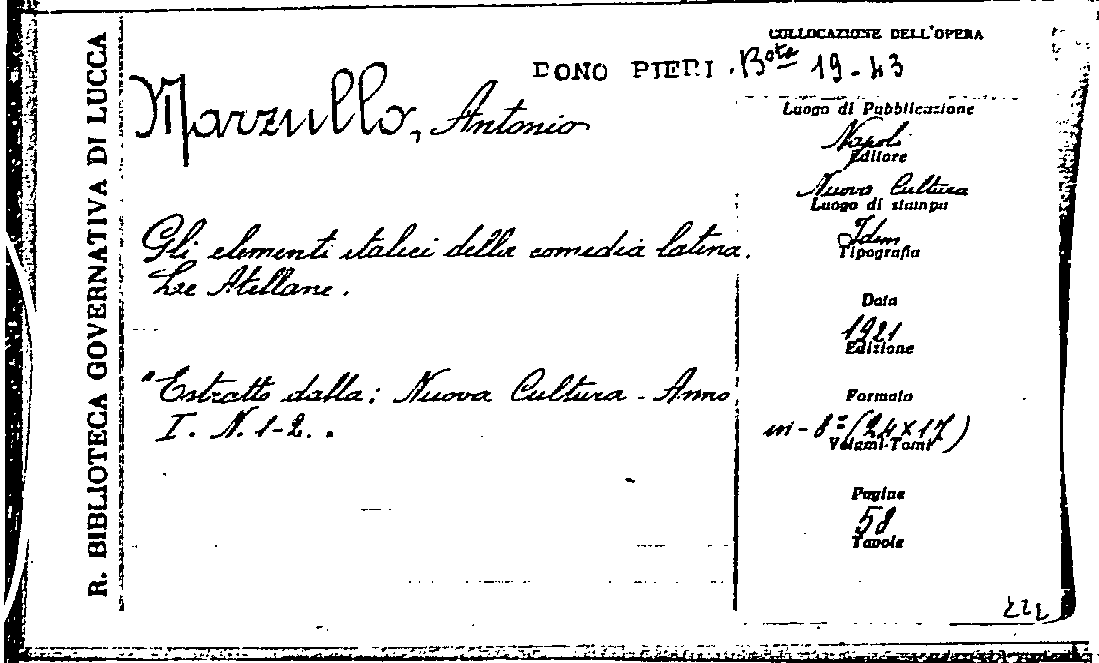 R. BIBLIOTECA GOVERNATIVA DI LUCCA
COLLOCAZIONE DELL'OPERA
DONO PIERI. Bote 19-43
Marzullo, Antonio
Gli elementi italici della comedia latina.
Le Atellane.
"Estratto dalla: Nuova Cultura - Anno
I. N. 1-2..
Luogo di Pubblicazione
Napoli
Editore
Nuova Cultura
Luogo di stampa
Idem
Tipografia
Data
1921
Edizione
Formato
in-8º (24x17)
Volumi-Tomi
Pagine
58
Tavole